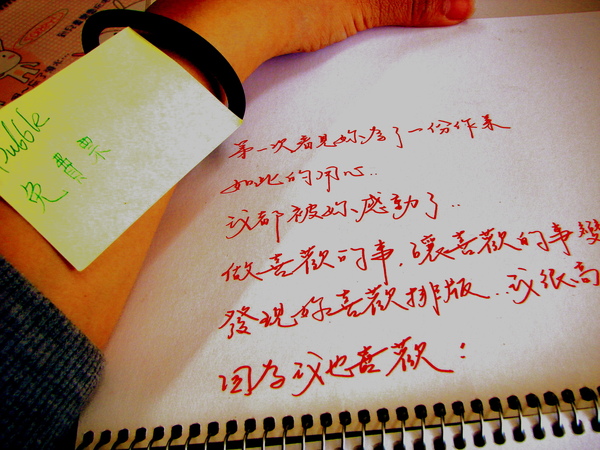 bubble
免費票
第一次看見妳為了一份作業
如此的用心..
我都被妳感動了..
做喜歡的事，讓喜歡的事變
發現妳喜歡排版..我很高
因為我也喜歡：